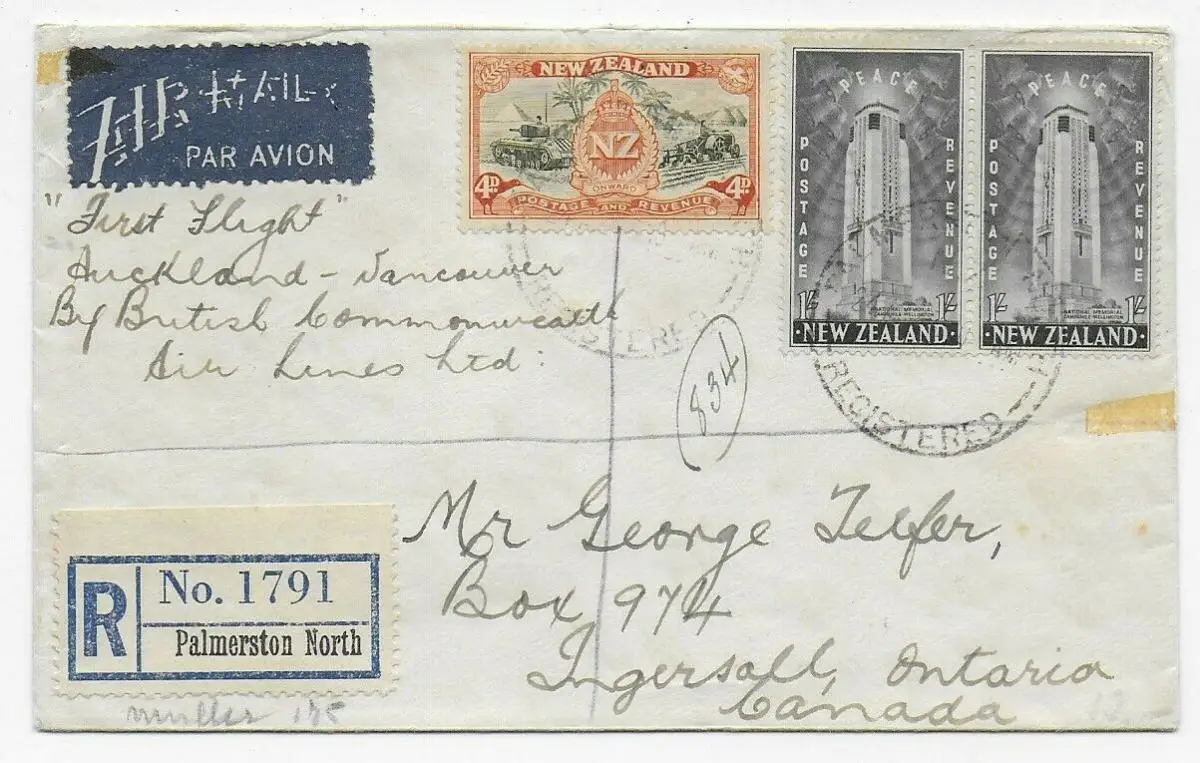 AIR MAIL
PAR AVION
"First Flight"
Auckland - Vancouver
By British Commonwealth
Air Lines Ltd:
NEW ZEALAND
NZ
ONWARD
4D 4D
POSTAGE AND REVENUE
PEACE
POSTAGE
REVENUE
1/- 1/-
NATIONAL MEMORIAL
CAMPANILE-WELLINGTON
·NEW ZEALAND·
PEACE
POSTAGE
REVENUE
1/- 1/-
NATIONAL MEMORIAL
CAMPANILE-WELLINGTON
·NEW ZEALAND·
REGISTERED
REGISTERED
834
Mr George Telfer,
Box 974
Ingersoll, Ontario
Canada
R
No. 1791
Palmerston North
muller 175